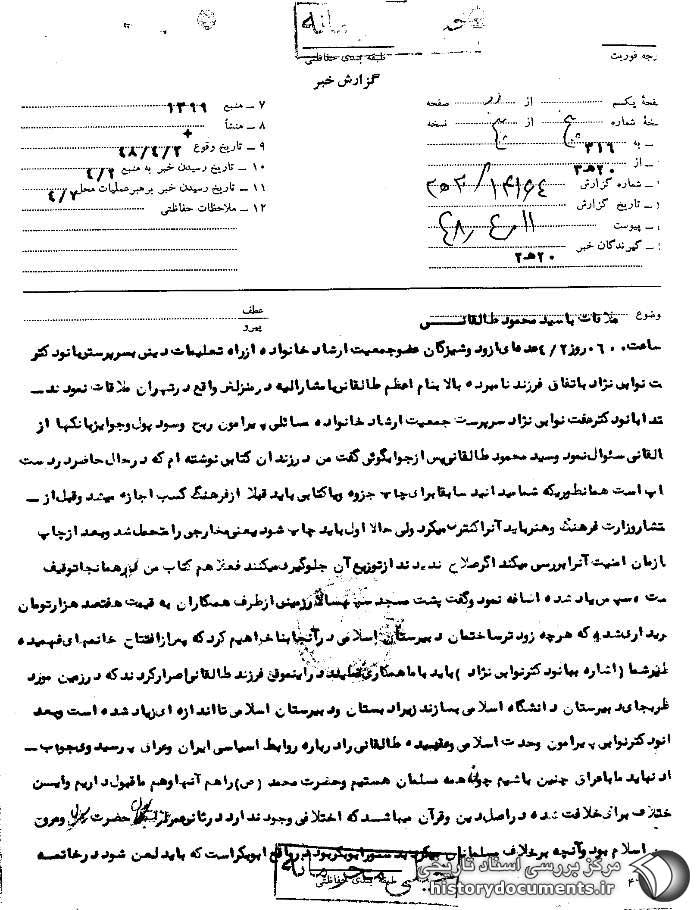 محرمانه
طبقه بندی حفاظتی
گزارش خبر
رجه فوریت
فحهٔ یکم از صفحه
خهٔ شماره از نسخه
به ۳۱۶
از ۲۰هـ۳
شماره گزارش
تاریخ گزارش
پیوست
گیرندگان خبر ۲۰هـ۲
۷ ـ منبع ۱۳۹۹
۸ ـ منشأ
۹ ـ تاریخ وقوع ۴۸/۴/۲
۱۰ ـ تاریخ رسیدن خبر به منبع ۴/۲
۱۱ ـ تاریخ رسیدن خبر برهبر عملیات محل ۴/۷
۱۲ ـ ملاحظات حفاظتی
وضوع ملاقات با سید محمود طالقانی
عطف
پیرو
ساعت ۰۶۰۰ روز ۴/۲ عده ای از دوشیزگان عضو جمعیت ارشاد خانواده از راه تعلیمات دینی بسرپرستی بانو دکتر
ت نوابی نژاد باتفاق فرزند نامبرده بالا بنام اعظم طالقانی با مشارالیه در منزلش واقع در تهران ملاقات نمودند ـ
تدا بانو دکتر عفت نوابی نژاد سرپرست جمعیت ارشاد خانواده مسائلی پیرامون ربح وسود پول وجوایز بانکها از
القانی سئوال نمود وسید محمود طالقانی پس از جوابگوئی گفت من در زندان کتابی نوشته ام که در حال حاضر در دست
اپ است همانطوریکه شما میدانید سابقا برای چاپ جزوه ویا کتابی باید قبلا از فرهنگ کسب اجازه میشد وقبل از ـ
تشار وزارت فرهنگ وهنر باید آنرا کنترل میکرد ولی حالا اول باید چاپ شود یعنی مخارجی را متحمل شد وبعد از چاپ
ازمان امنیت آنرا بررسی میکند اگر صلاح ندیدند از توزیع آن جلوگیری میکنند فعلا هم کتاب من در همانجا توقیف
ست سپس یاد شده اضافه نمود وگفت پشت مسجد سپهسالار زمینی از طرف همکاران به قیمت هفتصد هزار تومان
ریداری شده که هرچه زودتر ساختمان دبیرستان اسلامی در آنجا بنا خواهیم کرد که پس از افتتاح خانمهای فهمیده
ظیر شما (اشاره ببانو دکتر نوابی نژاد) باید با ما همکاری نمایند در اینموقع فرزند طالقانی اصرار کردند که در زمین مورد
ظر بجای دبیرستان دانشگاه اسلامی بسازند زیرا دبستان ودبیرستان اسلامی تا اندازه ای زیاد شده است وبعد
انو دکتر نوابی پیرامون وحدت اسلامی وعقیده طالقانی را درباره روابط سیاسی ایران وعراق پرسید وی جواب ـ
اد نباید ما با عراق چنین باشیم چون همه مسلمان هستیم وحضرت محمد (ص) را هم آنها وهم ما قبول داریم واین
ختلاف برای خلافت شده در اصل دین وقرآن میباشد که اختلافی وجود ندارد در ثانی حضرت وعروق
اسلام بود وآنچه برخلاف مسلمانان میکرد بدستور ابوبکر بود در واقع ابوبکر است که باید لعن شود در خاتمه
محرمانه
طبقه بندی حفاظتی
مرکز بررسی اسناد تاریخی
historydocuments.ir